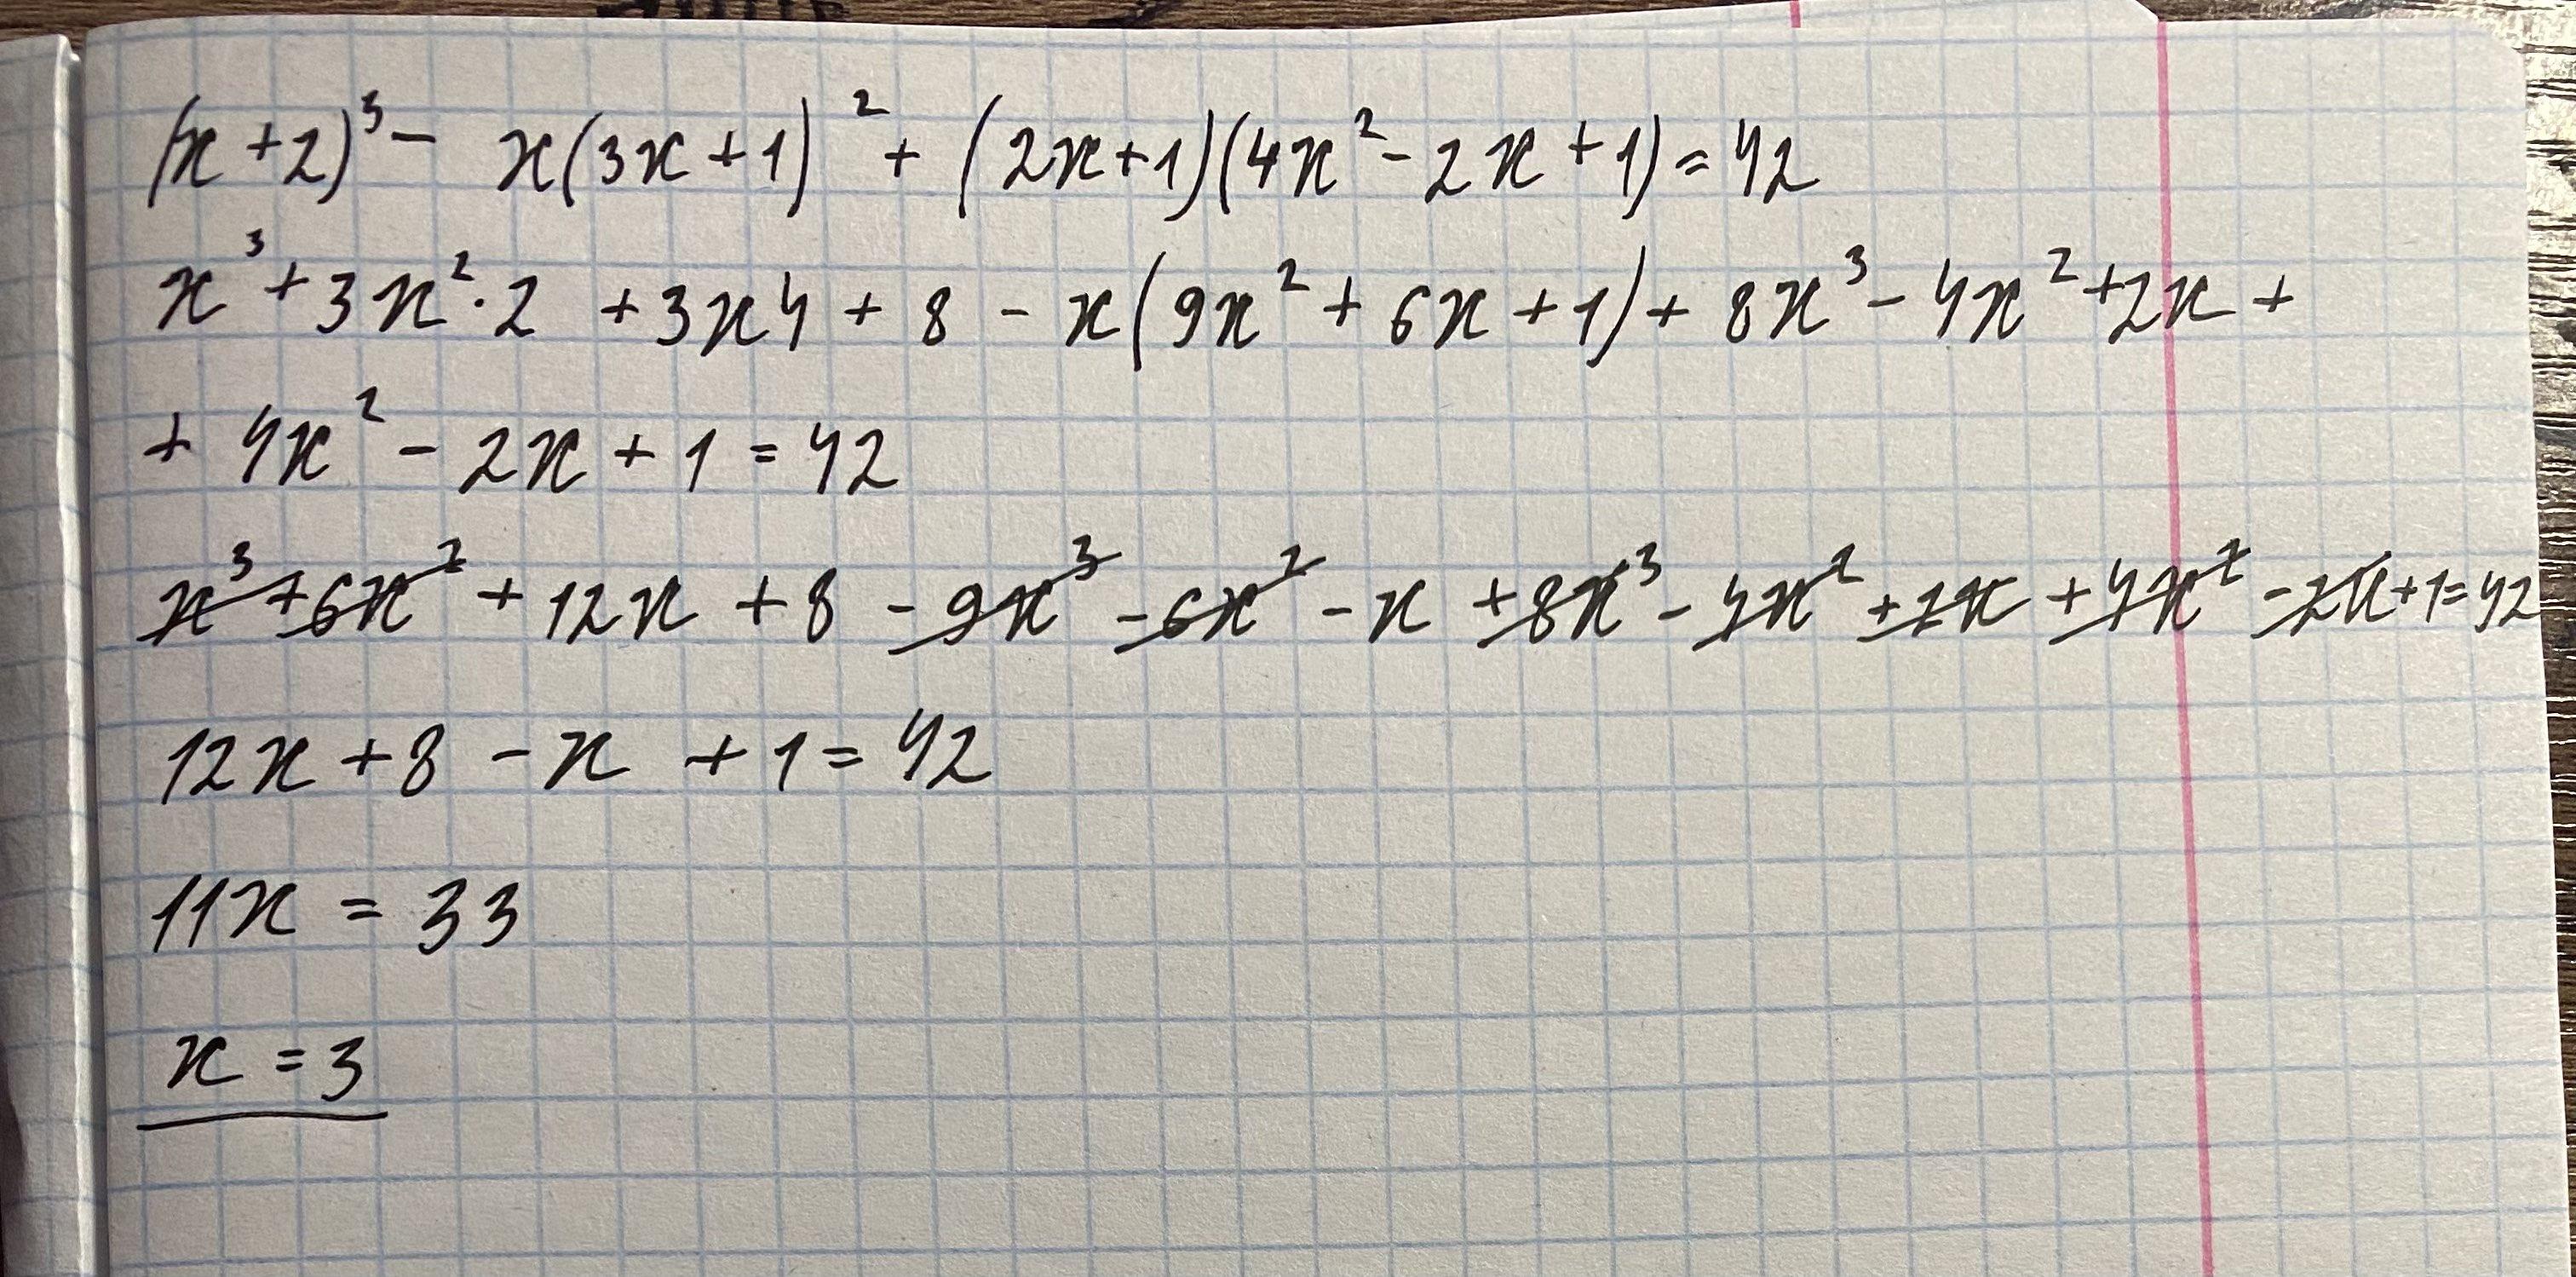 (x+2)³ - x(3x+1)² + (2x+1)(4x²-2x+1)=42
x³+3x²·2 +3x4 + 8 - x(9x²+6x+1)+ 8x³-4x²+2x+
+ 4x² - 2x + 1 = 42
x³+6x²+12x+8-9x³-6x²-x+8x³-4x²+2x+4x²-2x+1=42
12x+8-x+1=42
11x = 33
x = 3